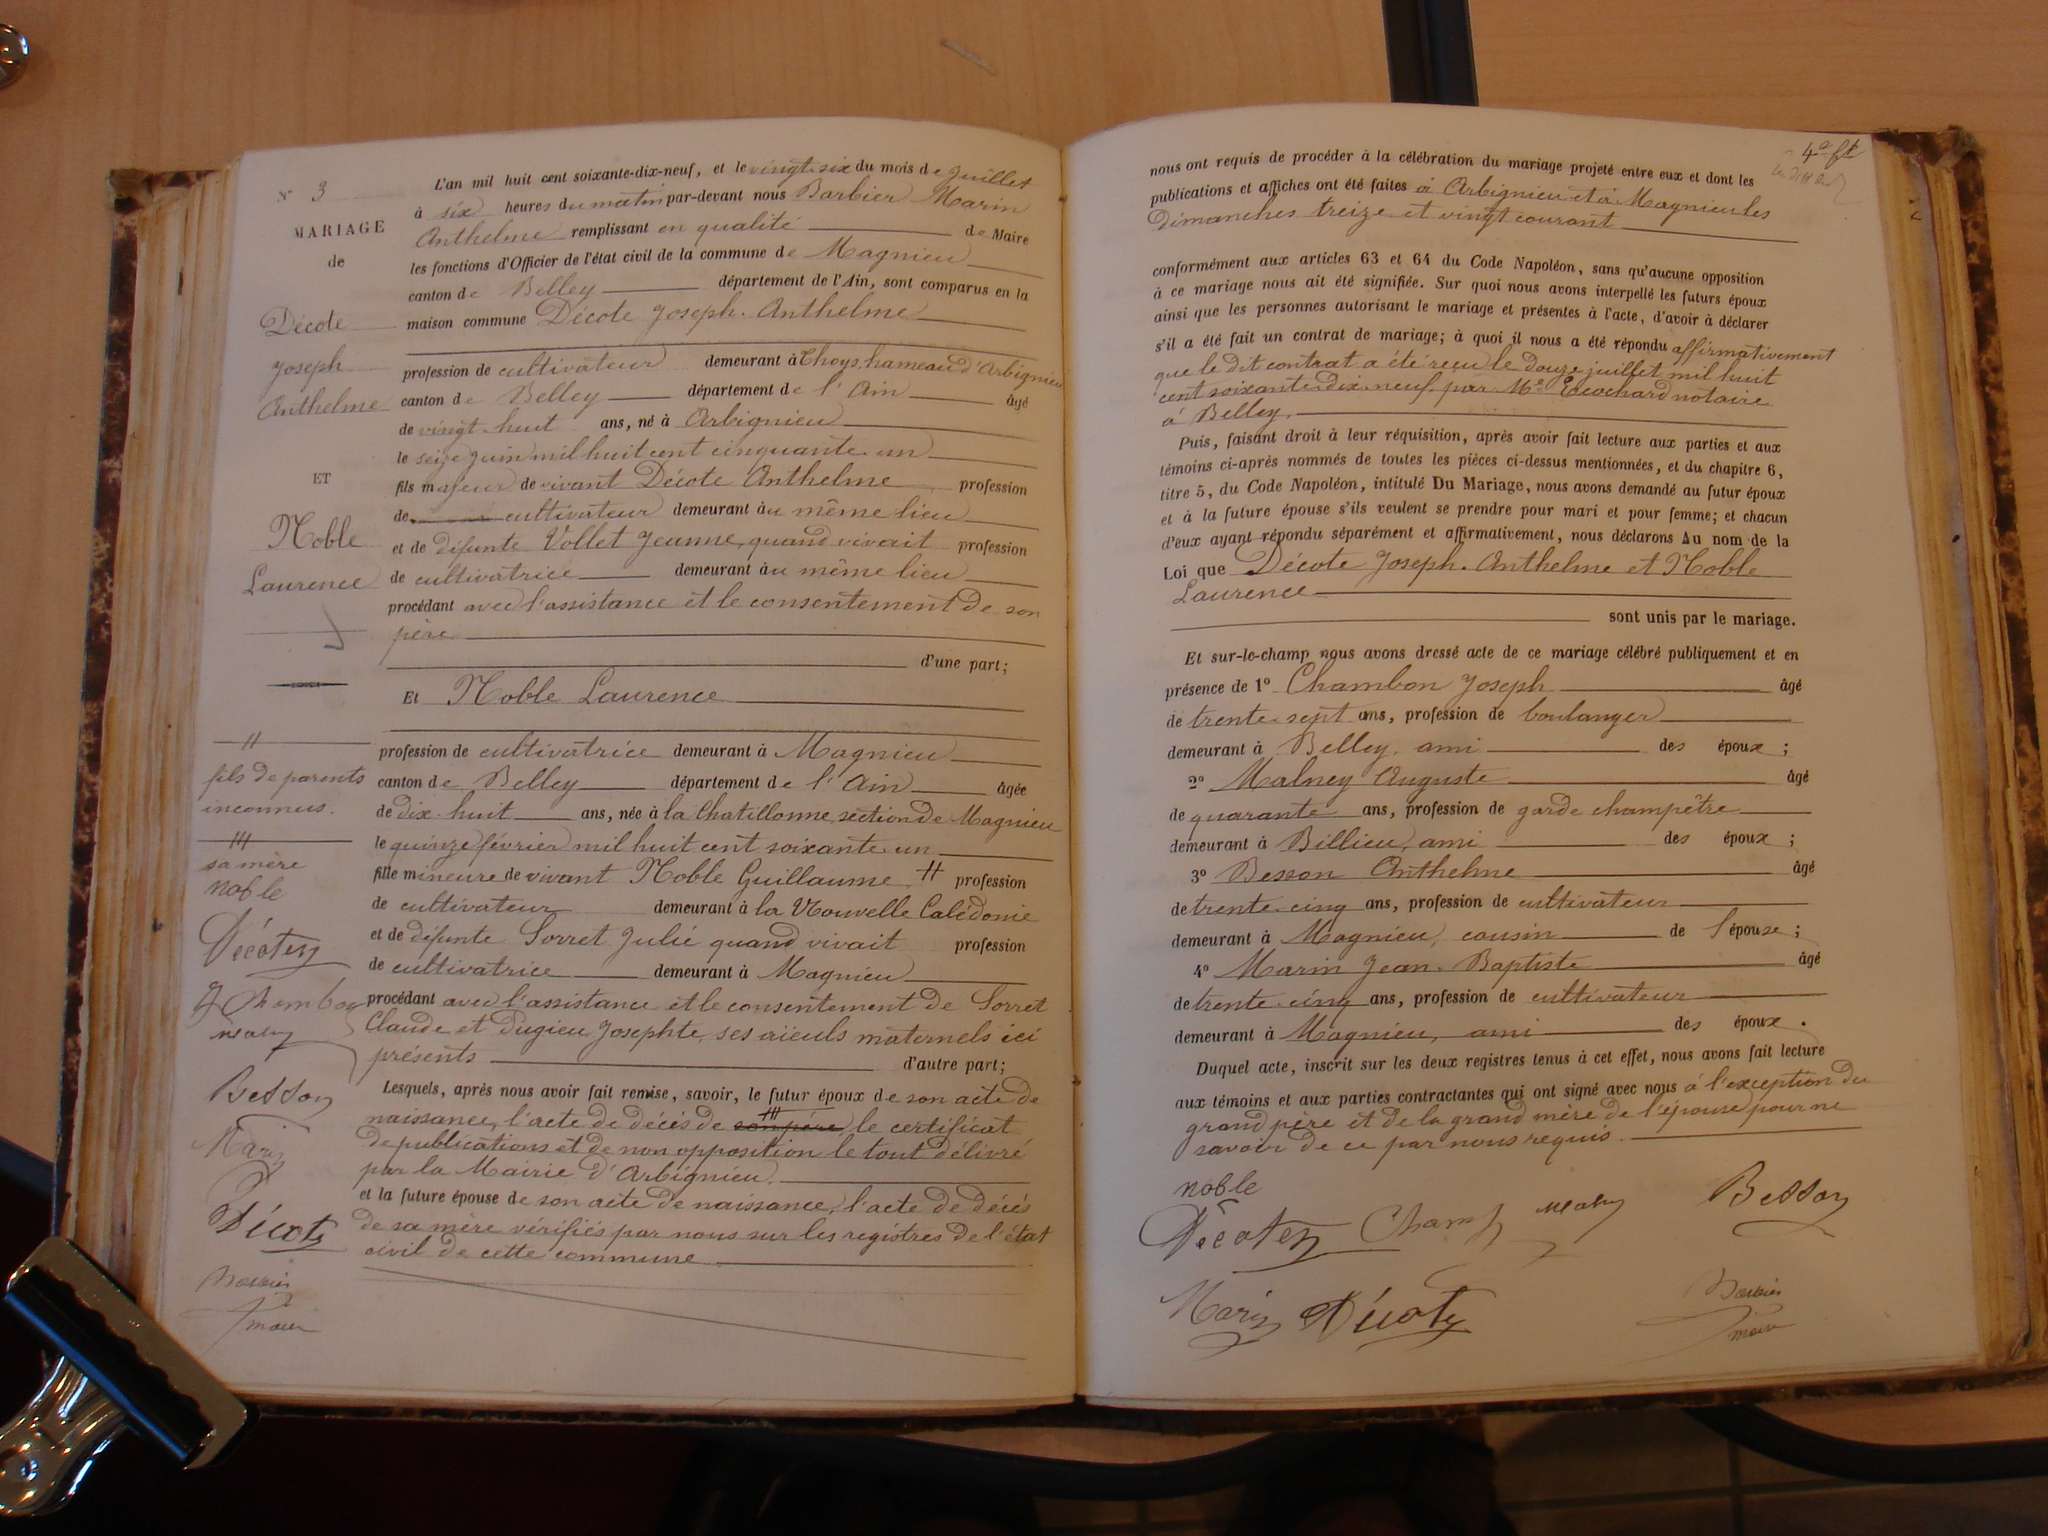 N° 3
MARIAGE
de
Décote
Joseph
Anthelme
ET
Noble
Laurence
fils de parents
inconnus.
sa mère
noble
Décote
J Chambon
Besson
Marin
Décote
Barbier
maire
L'an mil huit cent soixante-dix-neuf, et le vingt six du mois de Juillet
à six heures du matin par-devant nous Barbier Marin
Anthelme remplissant en qualité de Maire
les fonctions d'Officier de l'état civil de la commune de Magnieu
canton de Belley département de l'Ain, sont comparus en la
maison commune Décote Joseph. Anthelme
profession de cultivateur demeurant à Thoys hameau d'Arbignieu
canton de Belley département de l'Ain âgé
de vingt-huit ans, né à Arbignieu
le seize Juin mil huit cent cinquante un
fils majeur de vivant Décote Anthelme profession
de cultivateur demeurant au même lieu
et de défunte Vollet Jeanne, quand vivait profession
de cultivatrice demeurant au même lieu
procédant avec l'assistance et le consentement de son
père
d'une part;
Et Noble Laurence
profession de cultivatrice demeurant à Magnieu
canton de Belley département de l'Ain âgée
de dix-huit ans, née à la Chatillonne section de Magnieu
le quinze février mil huit cent soixante un
fille mineure de vivant Noble Guillaume # profession
de cultivateur demeurant à la Nouvelle Calédonie
et de défunte Sorret Julie quand vivait profession
de cultivatrice demeurant à Magnieu
procédant avec l'assistance et le consentement de Sorret
Claude et Dugieu Josephte, ses aïeuls maternels ici
présents d'autre part;
Lesquels, après nous avoir fait remise, savoir, le futur époux de son acte de
naissance, l'acte de décès de son père, le certificat
de publications et de non opposition le tout délivré
par la Mairie d'Arbignieu.
et la future épouse de son acte de naissance, l'acte de décès
de sa mère vérifiés par nous sur les registres de l'état
civil de cette commune
nous ont requis de procéder à la célébration du mariage projeté entre eux et dont les
publications et affiches ont été faites à Arbignieu et à Magnieu les
Dimanches treize et vingt courant
conformément aux articles 63 et 64 du Code Napoléon, sans qu'aucune opposition
à ce mariage nous ait été signifiée. Sur quoi nous avons interpellé les futurs époux
ainsi que les personnes autorisant le mariage et présentes à l'acte, d'avoir à déclarer
s'il a été fait un contrat de mariage; à quoi il nous a été répondu affirmativement
que le dit contrat a été reçu le douze juillet mil huit
cent soixante-dix-neuf par Me Ecochard notaire
à Belley.
Puis, faisant droit à leur réquisition, après avoir fait lecture aux parties et aux
témoins ci-après nommés de toutes les pièces ci-dessus mentionnées, et du chapitre 6,
titre 5, du Code Napoléon, intitulé Du Mariage, nous avons demandé au futur époux
et à la future épouse s'ils veulent se prendre pour mari et pour femme; et chacun
d'eux ayant répondu séparément et affirmativement, nous déclarons Au nom de la
Loi que Décote Joseph. Anthelme et Noble
Laurence
sont unis par le mariage.
Et sur-le-champ nous avons dressé acte de ce mariage célébré publiquement et en
présence de 1° Chambon Joseph âgé
de trente-sept ans, profession de boulanger
demeurant à Belley, ami des époux;
2° Malney Auguste âgé
de quarante ans, profession de garde champêtre
demeurant à Billieu, ami des époux;
3° Besson Anthelme âgé
de trente-cinq ans, profession de cultivateur
demeurant à Magnieu, cousin de l'épouse;
4° Marin Jean-Baptiste âgé
de trente-cinq ans, profession de cultivateur
demeurant à Magnieu, ami des époux.
Duquel acte, inscrit sur les deux registres tenus à cet effet, nous avons fait lecture
aux témoins et aux parties contractantes qui ont signé avec nous à l'exception du
grand père et de la grand mère de l'épouse pour ne
savoir de ce par nous requis.
noble
Décote Besson
Marin Décote Barbier
maire